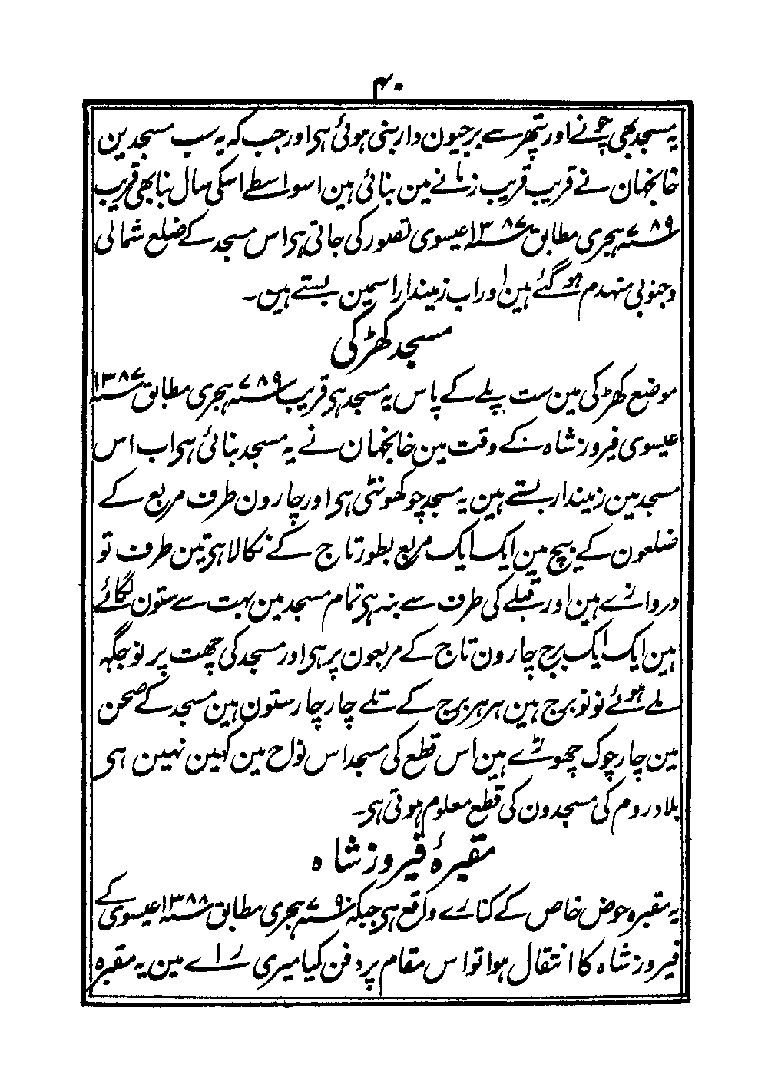 ۴۰
یہ مسجد بھی چونے اور پتھر سے برجیون دار بنی ہوئی ہی اور جب کہ یہ سب مسجدین
خانجہان نے قریب قریب زمانے مین بنائی ہین اسواسطے اسکی سال بنا بھی قریب
۷۸۹ ہجری مطابق ۱۳۸۷ عیسوی تصور کی جاتی ہی اس مسجد کے ضلع شمالی
و جنوبی منہدم ہو گئے ہین اور اب زمیندار اسمین بستے ہین۔
مسجد کھڑکی
موضع کھڑکی مین ست پلے کے پاس یہ مسجد ہی قریب ۷۸۹ ہجری مطابق ۱۳۸۷
عیسوی فیروز شاہ کے وقت مین خانجہان نے یہ مسجد بنائی ہی اب اس
مسجد مین زمیندار بستے ہین یہ مسجد چوکھونٹی ہی اور چارون طرف مربع کے
ضلعون کے بیچ مین ایک ایک مربع بطور تاج کے نکالا ہی تین طرف تو
دروازے ہین اور قبلے کی طرف سے بند ہی تمام مسجد مین بہت سے ستون لگائے
ہین ایک ایک برج چارون تاج کے مربعون پر ہی اور مسجد کی چھت پر نو جگہہ
ملے ہوئے نو نو برج ہین ہر ہر برج کے تلے چار چار ستون ہین مسجد کے صحن
مین چار چوک چھوڑے ہین اس قطع کی مسجد اس نواح مین کہین نہین ہی
بلاد روم کی مسجدون کی قطع معلوم ہوتی ہی۔
مقبرۂ فیروز شاہ
یہ مقبرہ حوض خاص کے کنارے واقع ہی جبکہ ۷۹۰ ہجری مطابق ۱۳۸۸ عیسوی کے
فیروز شاہ کا انتقال ہوا تو اس مقام پر دفن کیا میری راے مین یہ مقبرہ